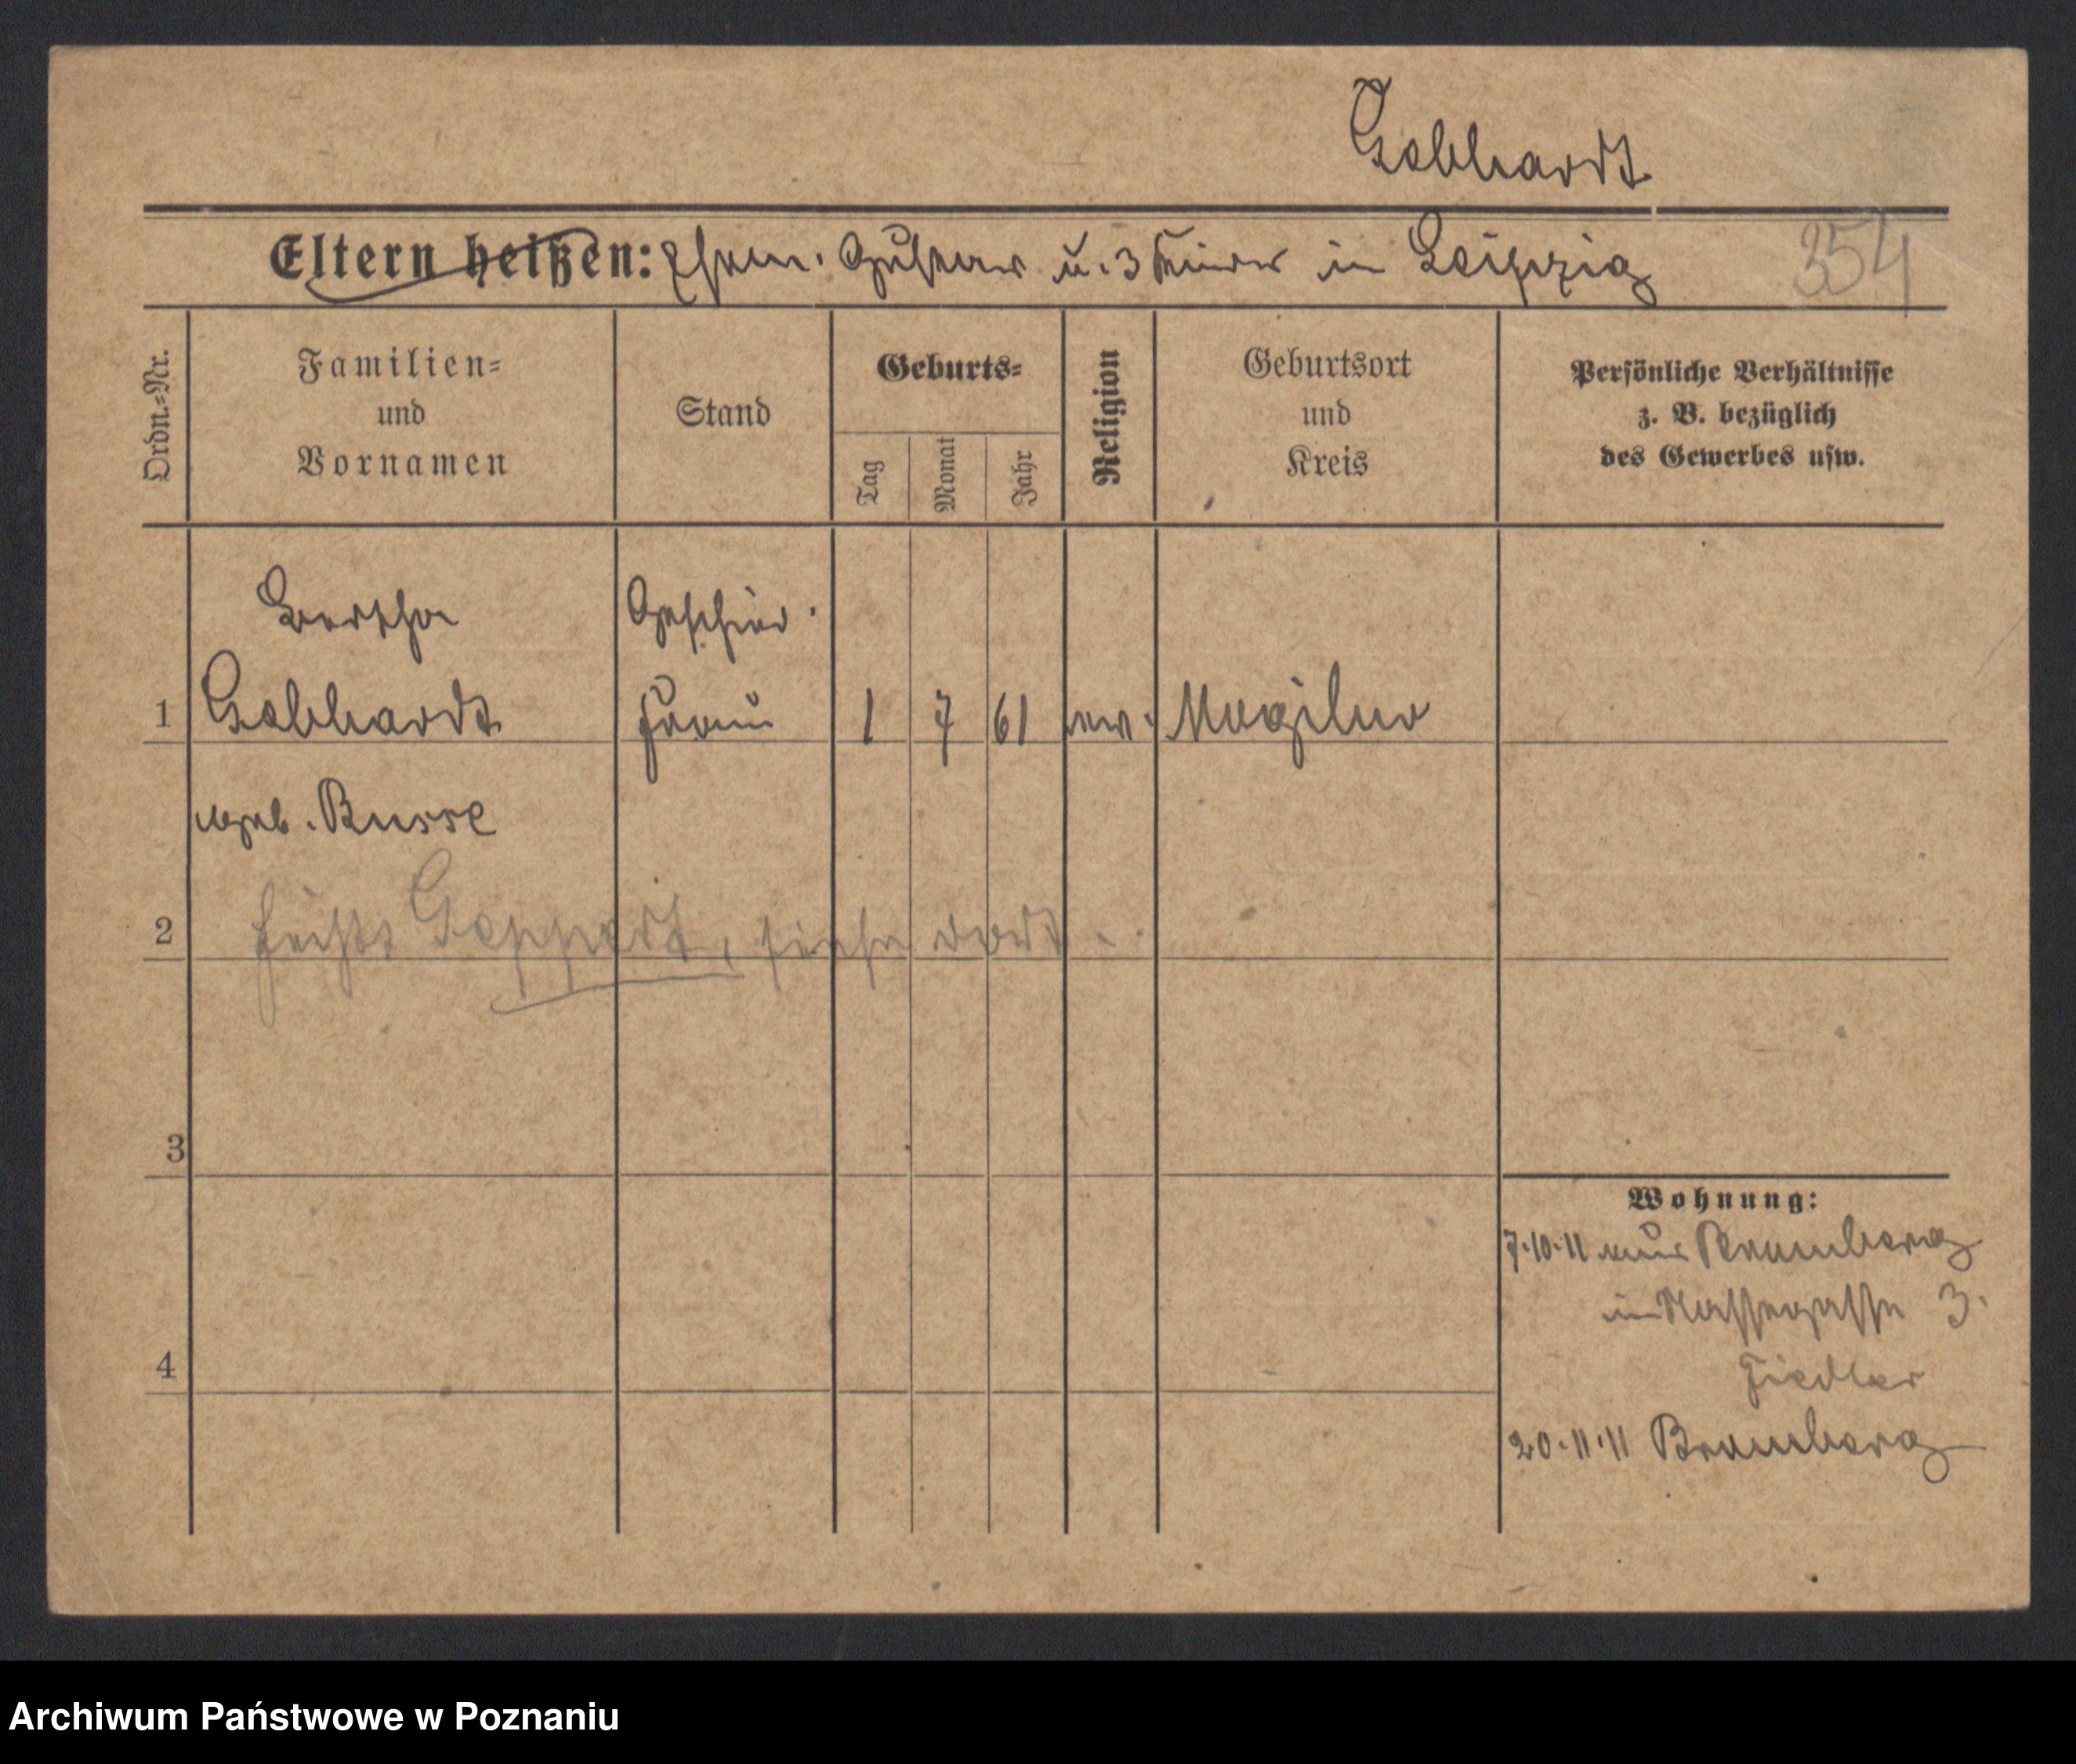 Gebhardt
Eltern heißen: Ehem. Gustav u. 3 Kinder in Leipzig
354
Ordn.=Nr.
Familien=
und
Vornamen
Stand
Geburts=
Tag
Monat
Jahr
Religion
Geburtsort
und
Kreis
Persönliche Verhältnisse
z. B. bezüglich
des Gewerbes usw.
Bertha
Geschied.
1 Gebhardt Frau 1 7 61 ev. Mogilno
geb. Busse
2 heißt Geppert, siehe dort.
3
Wohnung:
7.10.11 aus Bromberg
in Nassegasse 3.
4 Fiedler
20.11.11 Bromberg
Archiwum Państwowe w Poznaniu